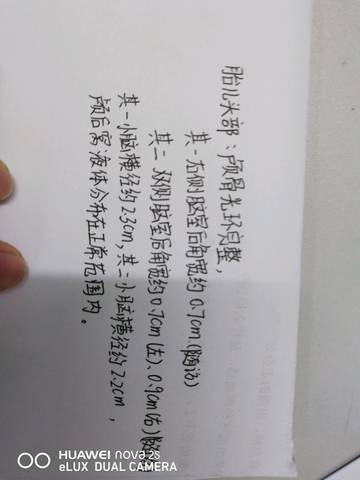 胎儿头部：颅骨光环完整，
其一右侧脑室后角宽约0.7cm.(随访)
其二双侧脑室后角宽约0.7cm(左)、0.9cm(右)(随
其一小脑横径约2.3cm，其二小脑横径约2.2cm，
颅后窝液体分布在正常范围内。
HUAWEI nova 2s
eLUX DUAL CAMERA